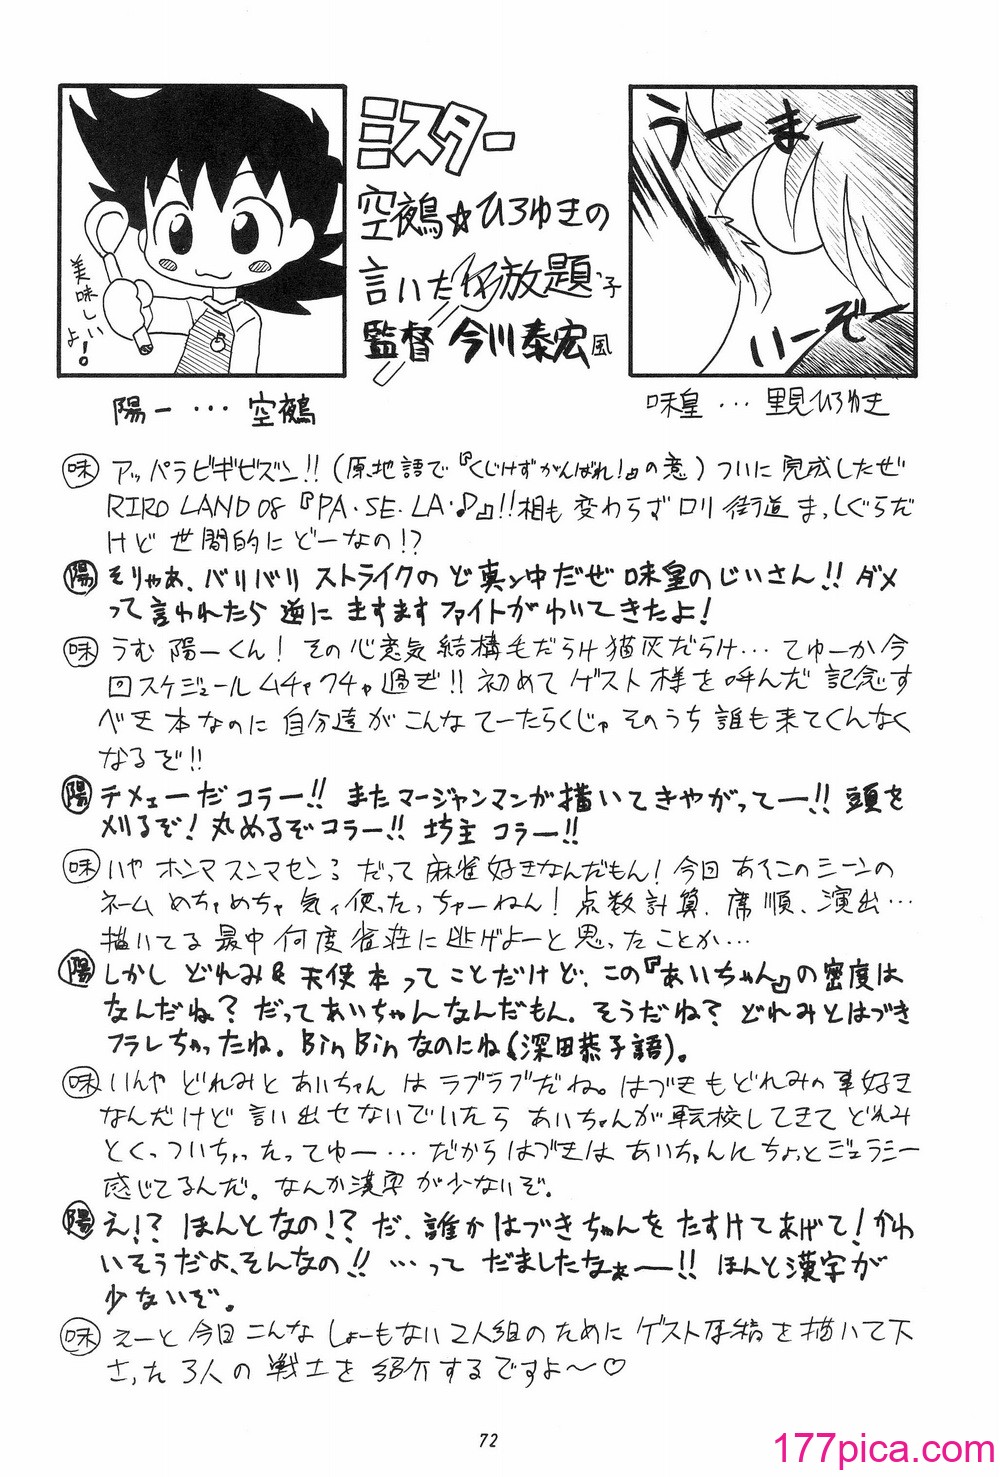 美味しい
よ!
ミスター
空鵺☆ひろゆきの
言いたい放題
監督 今川泰宏風
うーまー
いーぞー
陽一・・・空鵺
味皇・・・里見ひろゆき
味 アッパラビギビズン!!(原地語で『くじけずがんばれ!』の意)ついに完成したぜ
RIRO LAND 08『PA・SE・LA・♪』!!相も変わらずロリ街道まっしぐらだ
けど世間的にどーなの!?
陽 そりゃあ、バリバリストライクのど真ン中だぜ味皇のじいさん!!ダメ
って言われたら逆にますますファイトがわいてきたよ!
味 うむ陽一くん!その心意気結構毛だらけ猫灰だらけ…てゆーか今
回スケジュールムチャクチャ過ぎ!!初めてゲスト様を呼んだ記念す
べき本なのに自分達がこんなてーたらくじゃそのうち誰も来てくんなく
なるぞ!!
陽 チメェーだコラー!!またマージャンマンが描いてきやがってー!!頭を
刈るぞ!丸めるぞコラー!!坊主コラー!!
味 いやホンマスンマセンろだって麻雀好きなんだもん!今回あそこのシーンの
ネームめちゃめちゃ気ィ使ったっちゃーねん!点数計算、席順、演出…
描いてる最中何度雀荘に逃げよーと思ったことか…
陽 しかしどれみ&天使本ってことだけど、この『あいちゃん』の密度は
なんだね?だってあいちゃんなんだもん。そうだね?どれみとはづき
フラレちゃったね。BinBinなのにね(深田恭子語)。
味 いんやどれみとあいちゃんはラブラブだね。はづきもどれみの事好き
なんだけど言い出せないでいたらあいちゃんが転校してきてどれみ
とくっついちゃったってゆー…だからはづきはあいちゃんにちょっとジェラシー
感じてるんだ。なんか漢字が少ないぞ。
陽 え!?ほんとなの!?だ、誰かはづきちゃんをたすけてあげて!かわ
いそうだよ、そんなの!!…ってだましたなぁー!!ほんと漢字が
少ないぞ。
味 えーと今回こんなしょーもない2人組のためにゲスト原稿を描いて下
さった3人の戦士を紹介するですよ〜♡
72
177pica.com